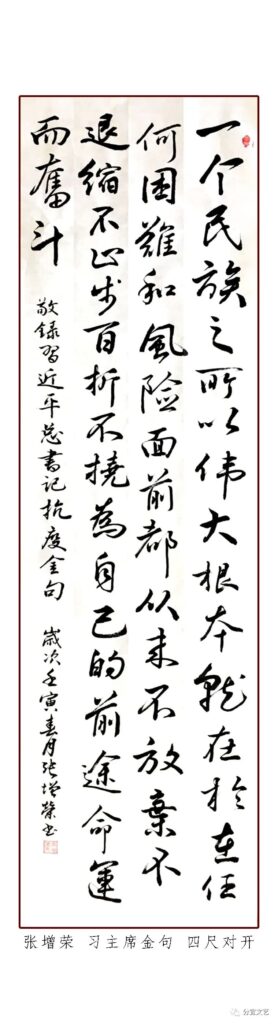 一个民族之所以伟大根本就在於在任
何困難和風险面前都从来不放棄不
退缩不止步百折不撓為自己的前途命運
而奮斗
敬錄習近平总書记抗疫金句 歲次壬寅春月张增榮书
张增荣 习主席金句 四尺对开
分宜文艺